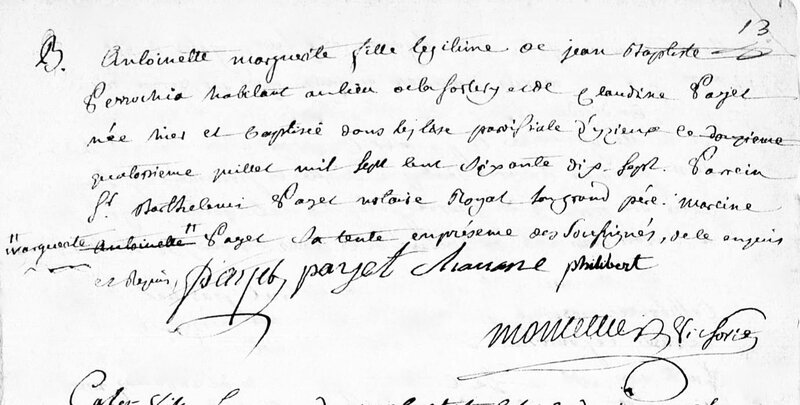 13
B. Antoinette marguerite fille legitime de jean Baptiste
Perrochia habitant au lieu de la et de Claudine Payet
née hier et baptisée dans leglise paroissiale d'yzieux ce douzieme
quatorsieme juillet mil sept cent soixante dix-sept. Parrein
Sr. Barthelemi Payet notaire Royal son grand père. Mareine
"marguerite Antoinette" Payet sa tente en présence des soussignés, de ce enquis
et Requis, Payet payet Chavane philibert
Montellier Vicaire